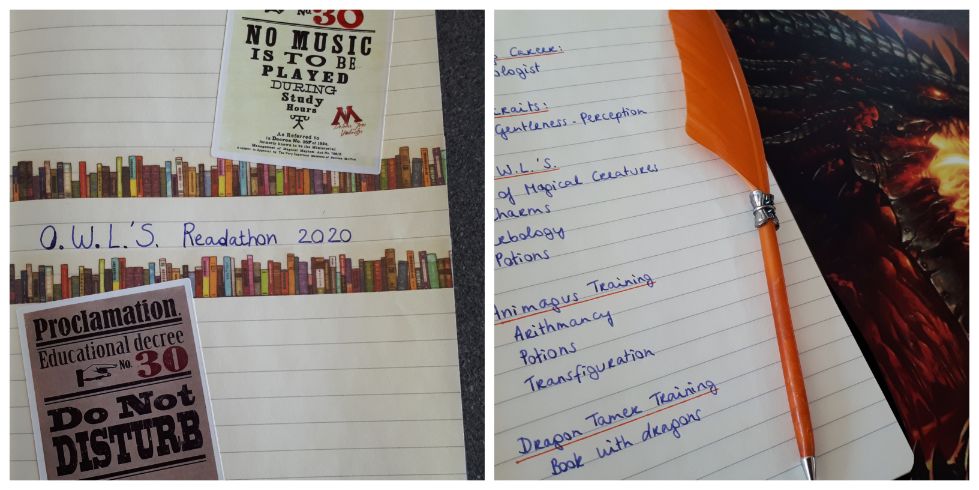 No. 30
NO MUSIC
IS TO BE
PLAYED
DURING
Study
Hours
M
As Referred to
O.W.L.'S. Readathon 2020
Proclamation.
Educational decree
No. 30
Do Not
DISTURB
Career:
ologist
raits:
Gentleness - Perception
W.L.'S.
of Magical Creatures
harms
rbology
Potions
Animagus Training
Arithmancy
Potions
Transfiguration
Dragon Tamer Training
Book with dragons